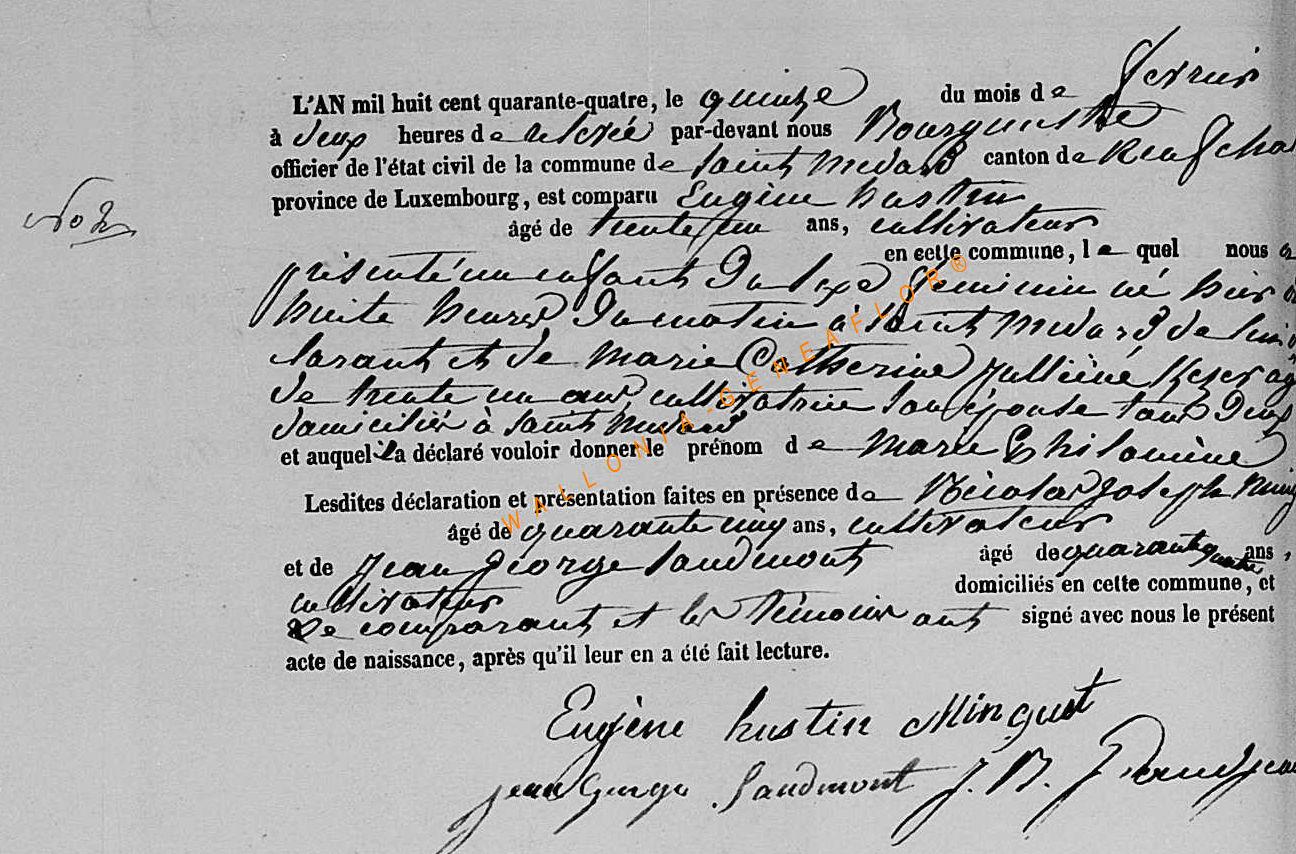 L'AN mil huit cent quarante-quatre, le quinze du mois de fevrier
à deux heures de relevée par-devant nous Bourgmestre
officier de l'état civil de la commune de Saint Medard canton de Neufcha
province de Luxembourg, est comparu Eugène hustin
No 2
âgé de trente un ans, cultivateur
en cette commune, le quel nous a
présenté un enfant du sexe feminin né hier à
huite heures du matin à Saint Medard de lui dé
clarant et de Marie Catherine Julliéne agé
de trente un ans cultivatrice son épouse tous deux
domiciliés à Saint Medard
et auquel il a déclaré vouloir donner le prénom de Marie Philomène
Lesdites déclaration et présentation faites en présence de Nicolas Joseph Ming
âgé de quarante cinq ans, cultivateur
et de Jean George Saudmont âgé de quarante quatre ans,
cultivateur domiciliés en cette commune, et
Le comparant et les témoins ont signé avec nous le présent
acte de naissance, après qu'il leur en a été fait lecture.
Eugène hustin Minguet
Jean George Saudmont J. B.
WALLONIA-GENEAFLOR®